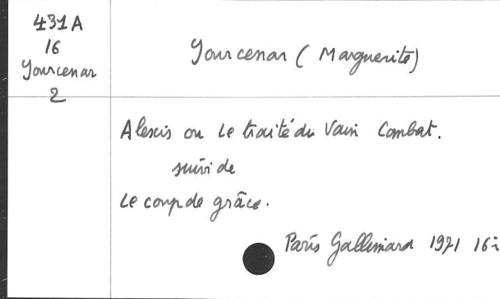 431A
16
Yourcenar
2
Yourcenar (Marguerite)
Alexis ou Le traité du Vain Combat.
suivi de
Le coup de grâce.
Paris Gallimard 1971 16-